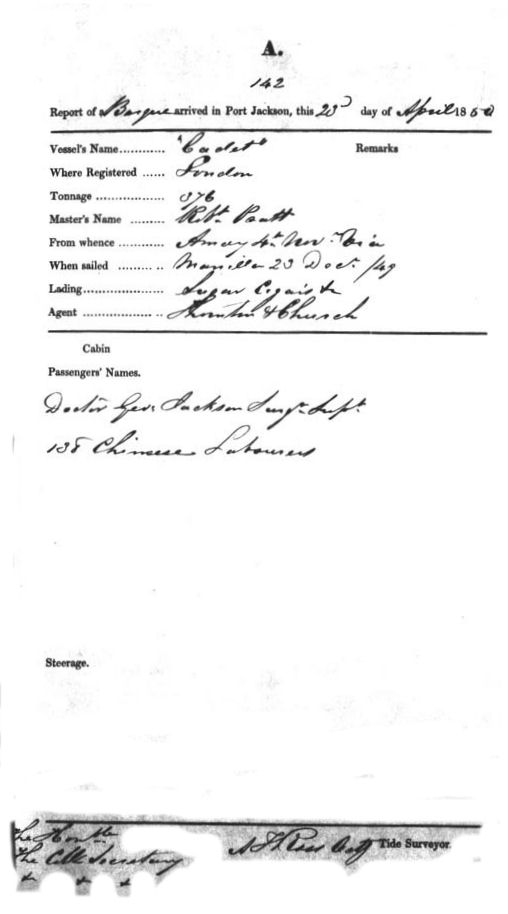 A.
142
Report of a Barque arrived in Port Jackson, this 23d day of April 1850
Vessel's Name............ "Cadet" Remarks
Where Registered ...... London
Tonnage .................. 376
Master's Name ......... Robt. Pratt
From whence ............ Amoy 4th Novr. Via
When sailed ......... .. Manilla 23 Decr. /49
Lading..................... Sugar Cigars &c
Agent ................... .. Thornton & Church
Cabin
Passengers' Names.
Doctor Geo: Jackson Surgn. Supt.
138 Chinese Labourers
Steerage.
The Honble
The Coll Secretary
&c &c &c
Ross Actg Tide Surveyor